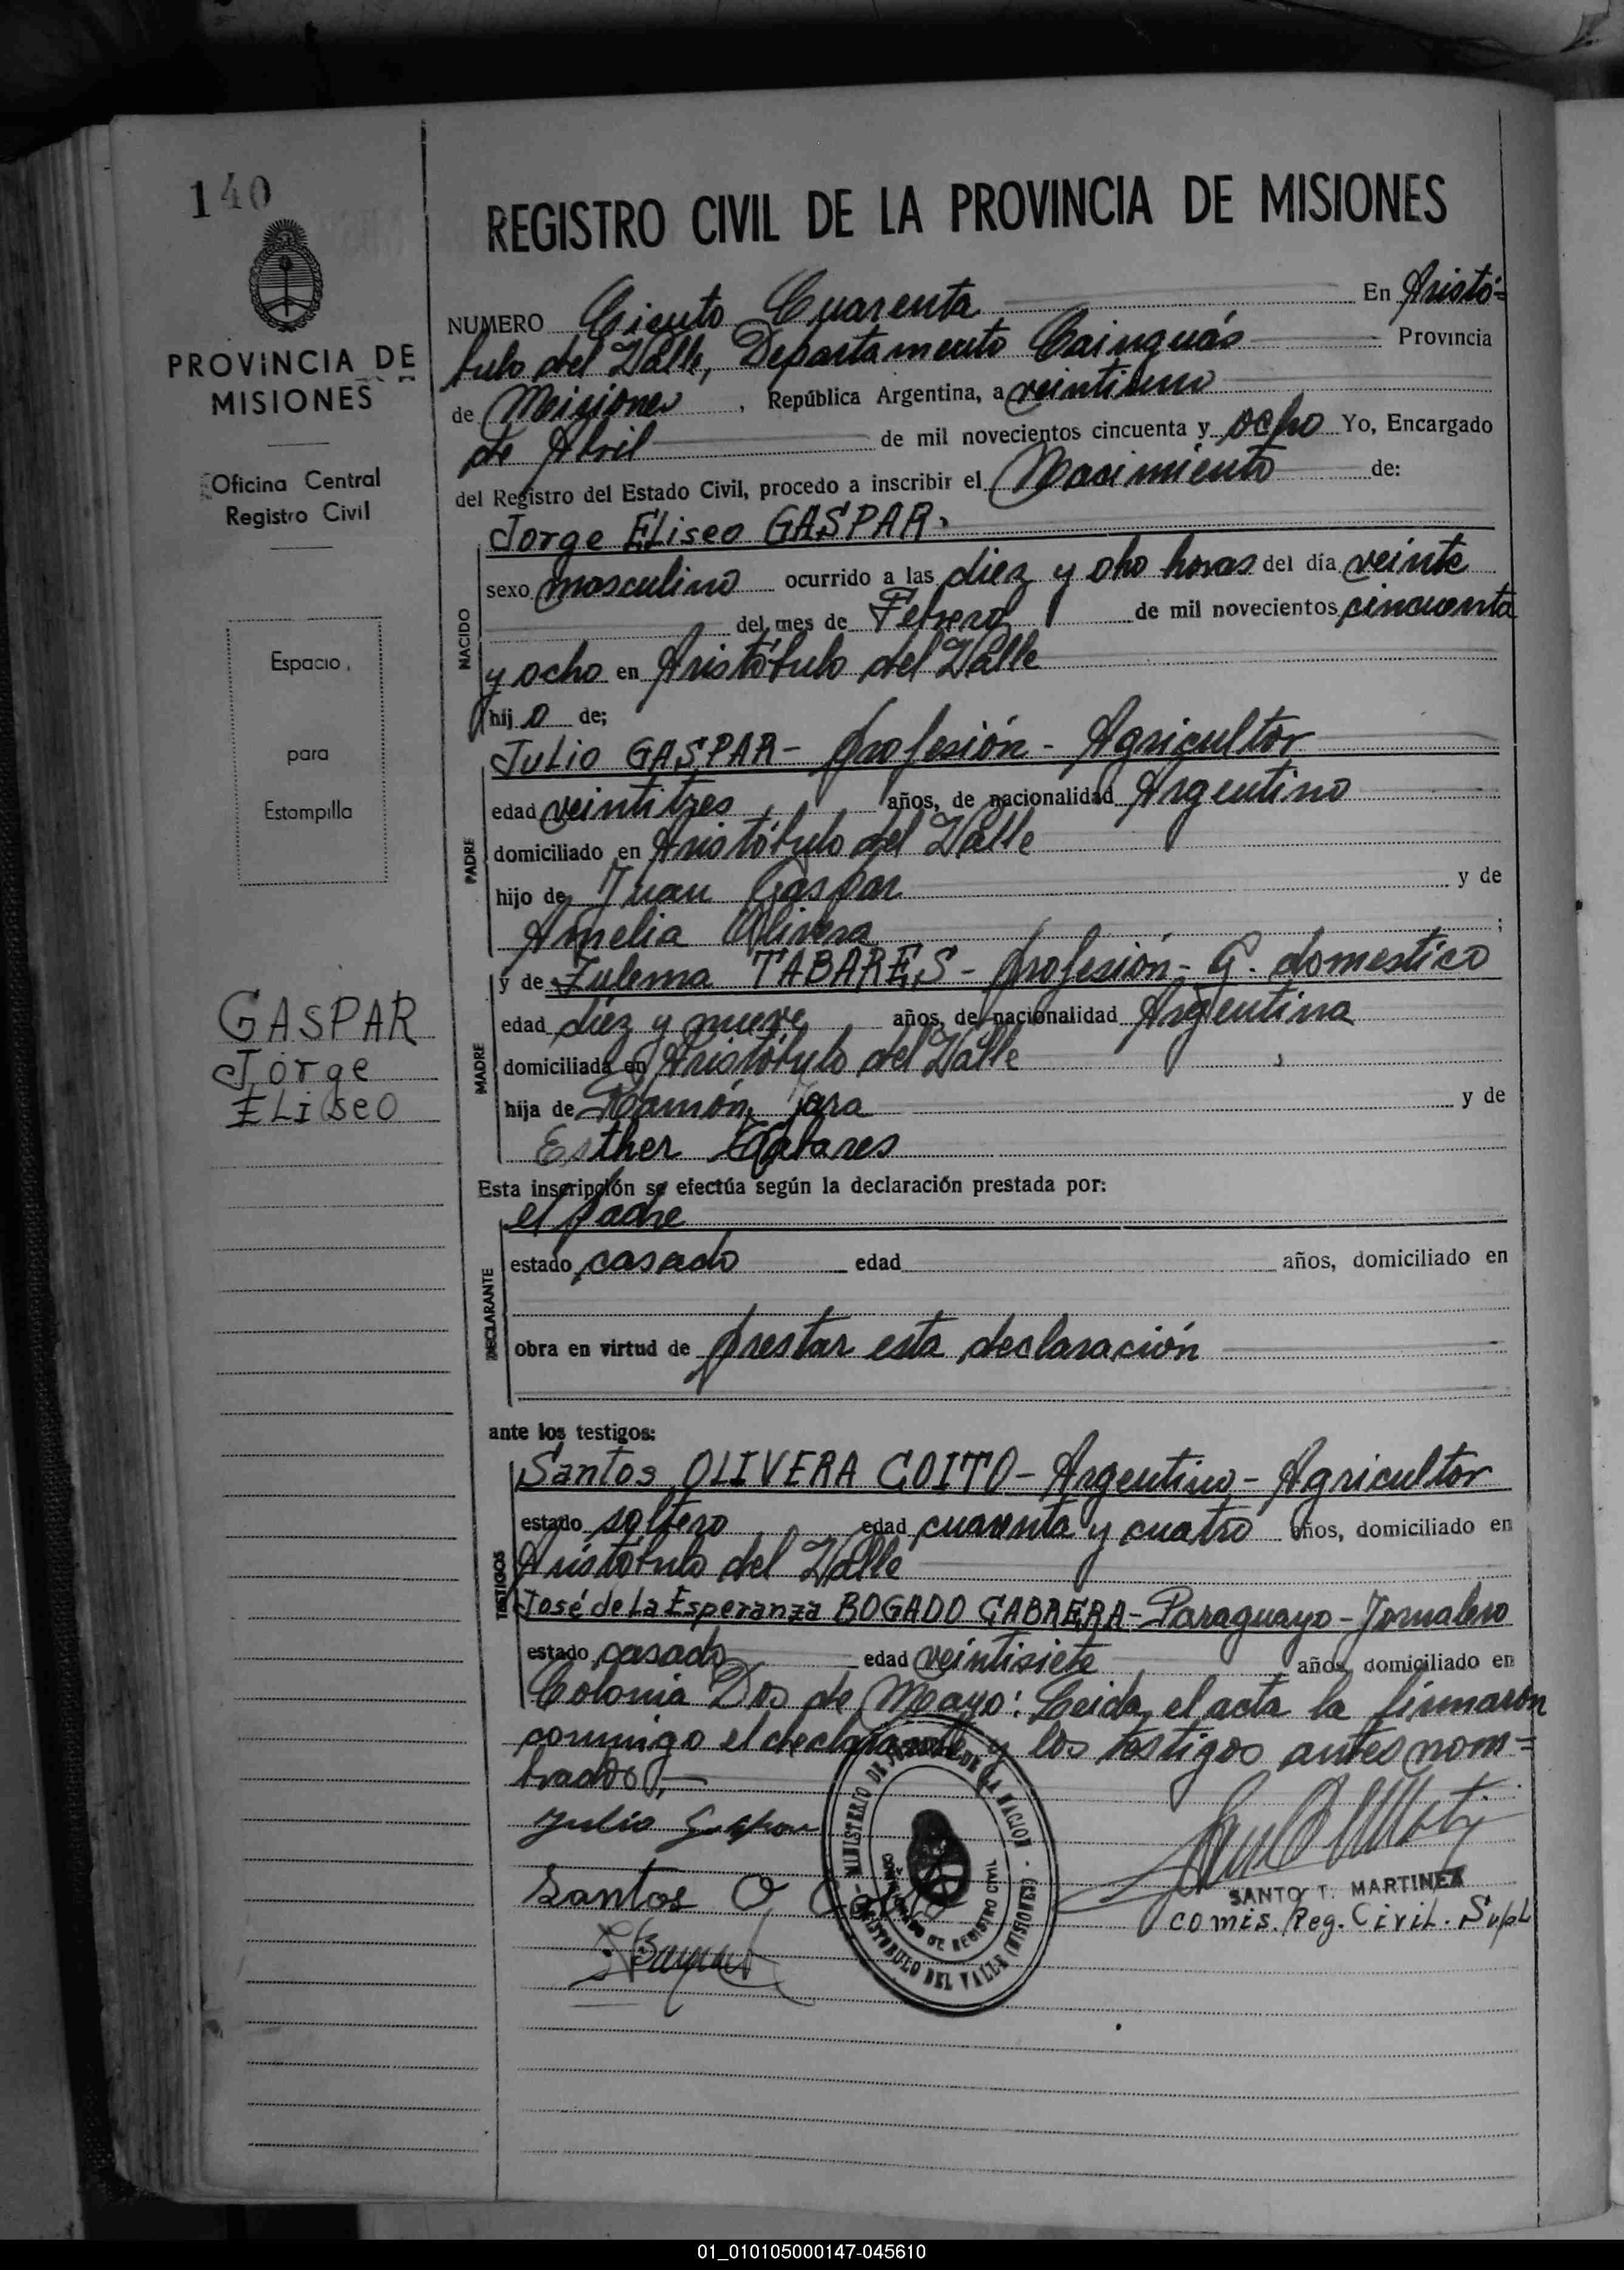 140
PROVINCIA DE
MISIONES
Oficina Central
Registro Civil
Espacio
para
Estampilla
GASPAR
Jorge
ELiseo
REGISTRO CIVIL DE LA PROVINCIA DE MISIONES
NUMERO Ciento Cuarenta En Aristó=
bulo del Valle, Departamento Cainguás Provincia
de Misiones, República Argentina, a veintiuno
de Abril de mil novecientos cincuenta y ocho Yo, Encargado
del Registro del Estado Civil, procedo a inscribir el Nacimiento de:
Jorge ELiseo GASPAR.
NACIDO
sexo masculino ocurrido a las diez y oho horas del día veinte
del mes de Febrero de mil novecientos cincuenta
y ocho en Aristóbulo del Valle
hijo de;
Julio GASPAR - profesión - Agricultor
PADRE
edad veintitres años, de nacionalidad Argentino
domiciliado en Aristóbulo del Valle
hijo de Juan Gaspar y de
Amelia Olivera ;
y de Zulema TABARES - profesión - G. domestico
MADRE
edad diez y nueve años, de nacionalidad Argentina
domiciliada en Aristóbulo del Valle
hija de Ramón Jara y de
Esther Tabares
Esta inscripción se efectúa según la declaración prestada por:
el padre
DECLARANTE
estado casado edad años, domiciliado en
obra en virtud de prestar esta declaración
ante los testigos:
Santos OLIVERA COITO - Argentino - Agricultor
TESTIGOS
estado soltero edad cuarenta y cuatro años, domiciliado en
Aristóbulo del Valle
José de La Esperanza BOGADO CABRERA - Paraguayo - Jornalero
estado casado edad veintisiete años, domiciliado en
Colonia Dos de Mayo: Leida el acta la firmaron
conmigo el declarante y los testigos antes nom=
brados.-
Julio Gaspar
Santos O
MINISTERIO DE DE LA NACION
REGISTRO CIVIL
ARISTOBULO DEL VALLE (MISIONES)
SANTO T. MARTINEZ
comis. Reg. Civil. Supl
01_010105000147-045610